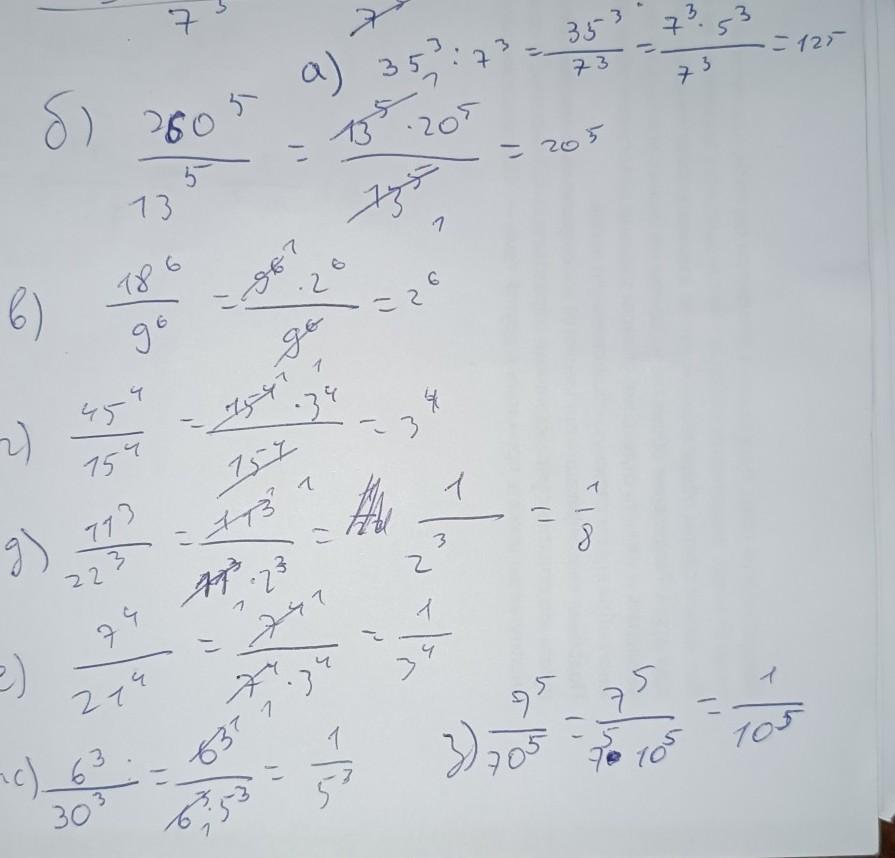 7³ 7
а) 35³ : 7³ = 35³/7³ = 7³·5³/7³ = 125
б) 260⁵/13⁵ = 13⁵·20⁵/13⁵ = 20⁵
в) 18⁶/9⁶ = 9⁶·2⁶/9⁶ = 2⁶
г) 45⁴/15⁴ = 15⁴·3⁴/15⁴ = 3⁴
д) 11³/22³ = 11³/11³·2³ = 1/2³ = 1/8
е) 7⁴/21⁴ = 7⁴/7⁴·3⁴ = 1/3⁴
ж) 6³/30³ = 6³/6³·5³ = 1/5³
з) 7⁵/70⁵ = 7⁵/7⁵·10⁵ = 1/10⁵